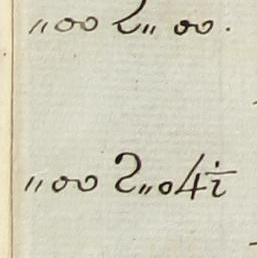 „00 2„ 00.
„00 2„04½